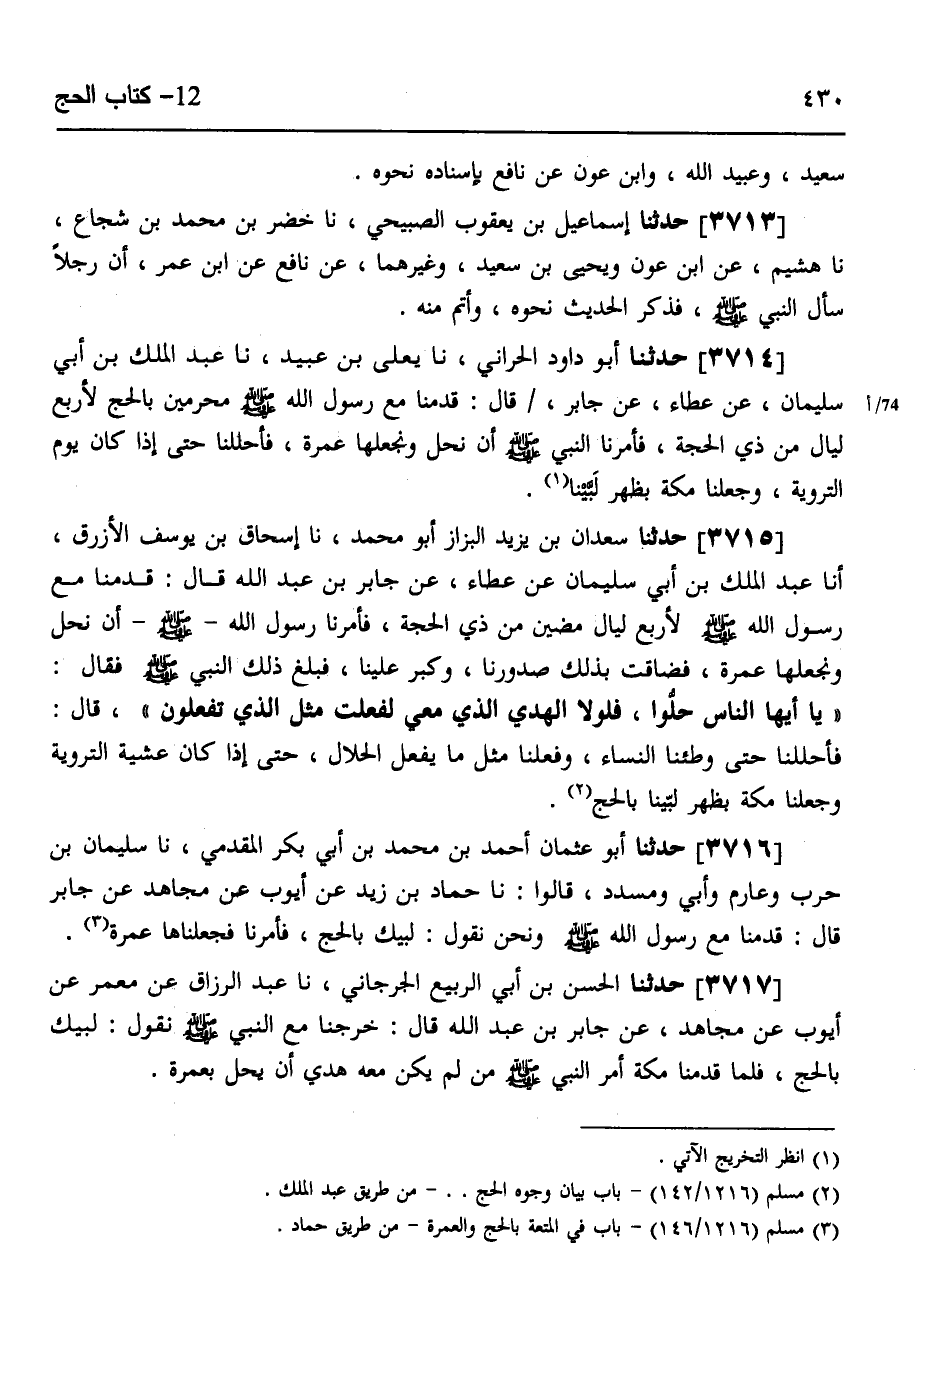 ٤٣٠ 12- كتاب الحج
سعيد ، وعبيد الله ، وابن عون عن نافع بإسناده نحوه .
[٣٧١٣] حدثنا إسماعيل بن يعقوب الصبيحي ، نا خضر بن محمد بن شجاع ،
نا هشيم ، عن ابن عون ويحيى بن سعيد ، وغيرهما ، عن نافع عن ابن عمر ، أن رجلاً
سأل النبي ﷺ ، فذكر الحديث نحوه ، وأتم منه .
[٣٧١٤] حدثنا أبو داود الحراني ، نا يعلى بن عبيد ، نا عبد الملك بن أبي
74/أ سليمان ، عن عطاء ، عن جابر ، / قال : قدمنا مع رسول الله ﷺ محرمين بالحج لأربع
ليال من ذي الحجة ، فأمرنا النبي ﷺ أن نحل ونجعلها عمرة ، فأحللنا حتى إذا كان يوم
التروية ، وجعلنا مكة بظهر لَبَّيْنا(١) .
[٣٧١٥] حدثنا سعدان بن يزيد البزاز أبو محمد ، نا إسحاق بن يوسف الأزرق ،
أنا عبد الملك بن أبي سليمان عن عطاء ، عن جابر بن عبد الله قال : قدمنا مع
رسول الله ﷺ لأربع ليال مضين من ذي الحجة ، فأمرنا رسول الله - ﷺ - أن نحل
ونجعلها عمرة ، فضاقت بذلك صدورنا ، وكبر علينا ، فبلغ ذلك النبي ﷺ فقال :
« يا أيها الناس حلُّوا ، فلولا الهدي الذي معي لفعلت مثل الذي تفعلون » ، قال :
فأحللنا حتى وطئنا النساء ، وفعلنا مثل ما يفعل الحلال ، حتى إذا كان عشية التروية
وجعلنا مكة بظهر لبّينا بالحج(٢) .
[٣٧١٦] حدثنا أبو عثمان أحمد بن محمد بن أبي بكر المقدمي ، نا سليمان بن
حرب وعارم وأبي ومسدد ، قالوا : نا حماد بن زيد عن أيوب عن مجاهد عن جابر
قال : قدمنا مع رسول الله ﷺ ونحن نقول : لبيك بالحج ، فأمرنا فجعلناها عمرة(٣) .
[٣٧١٧] حدثنا الحسن بن أبي الربيع الجرجاني ، نا عبد الرزاق عن معمر عن
أيوب عن مجاهد ، عن جابر بن عبد الله قال : خرجنا مع النبي ﷺ نقول : لبيك
بالحج ، فلما قدمنا مكة أمر النبي ﷺ من لم يكن معه هدي أن يحل بعمرة .
(١) انظر التخريج الآتي .
(٢) مسلم (١٤٢/١٢١٦) - باب بيان وجوه الحج . . - من طريق عبد الملك .
(٣) مسلم (١٤٦/١٢١٦) - باب في المتعة بالحج والعمرة - من طريق حماد .